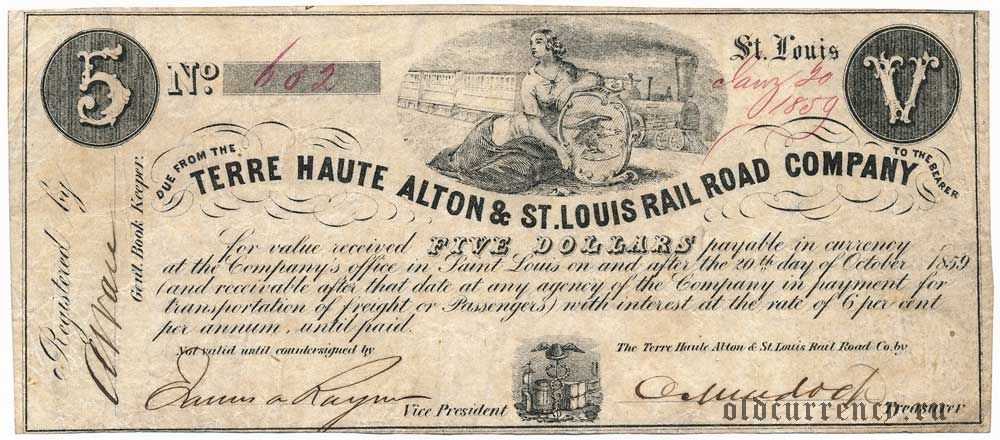 5
No. 602
St. Louis
Jany 20
1859
V
DUE FROM THE
TERRE HAUTE ALTON & ST. LOUIS RAIL ROAD COMPANY
TO THE BEARER
for value received FIVE DOLLARS payable in currency
at the Company's office in Saint Louis on and after the 20th day of October 1859
(and receivable after that date at any agency of the Company in payment for
transportation of freight or Passengers) with interest at the rate of 6 per cent
per annum, until paid.
Registered by
Genl. Book Keeper.
Not valid until countersigned by
Vice President
The Terre Haute Alton & St. Louis Rail Road Co. by
Treasurer
oldcurrency.ru